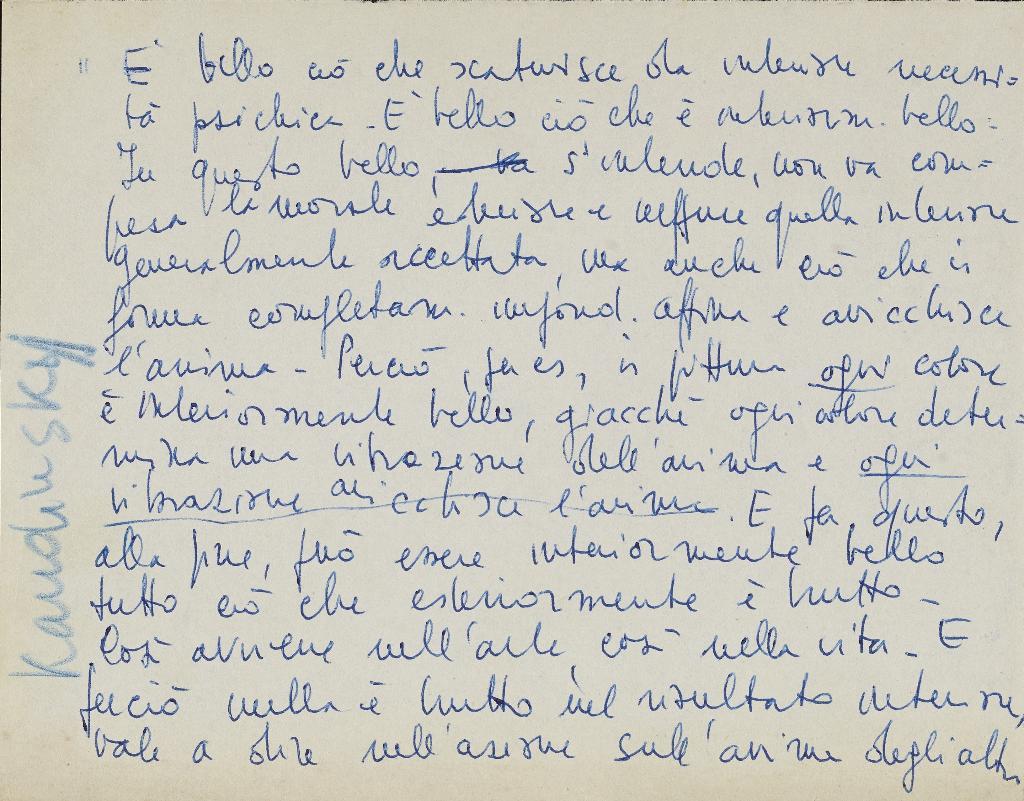 " E' bello ciò che scaturisce da interiore necessi-
tà psichica - E' bello ciò che è interiorm. bello -
In questo bello, s'intende, non va com-
presa la morale esteriore e neppure quella interiore
generalmente accettata, ma anche ciò che in
forma completam. imfond. affina e arricchisce
l'anima - Perciò, per es, in pittura ogni colore
è interiormente bello, giacché ogni colore deter-
mina una vibrazione dell'anima e ogni
vibrazione arricchisce l'anima. E per questo,
alla fine, può essere interiormente bello
tutto ciò che esteriormente è brutto -
Così avviene nell'arte, così nella vita - E
perciò nulla è brutto nel risultato interiore,
vale a dire nell'azione sull'anima degli altri
Kandinsky